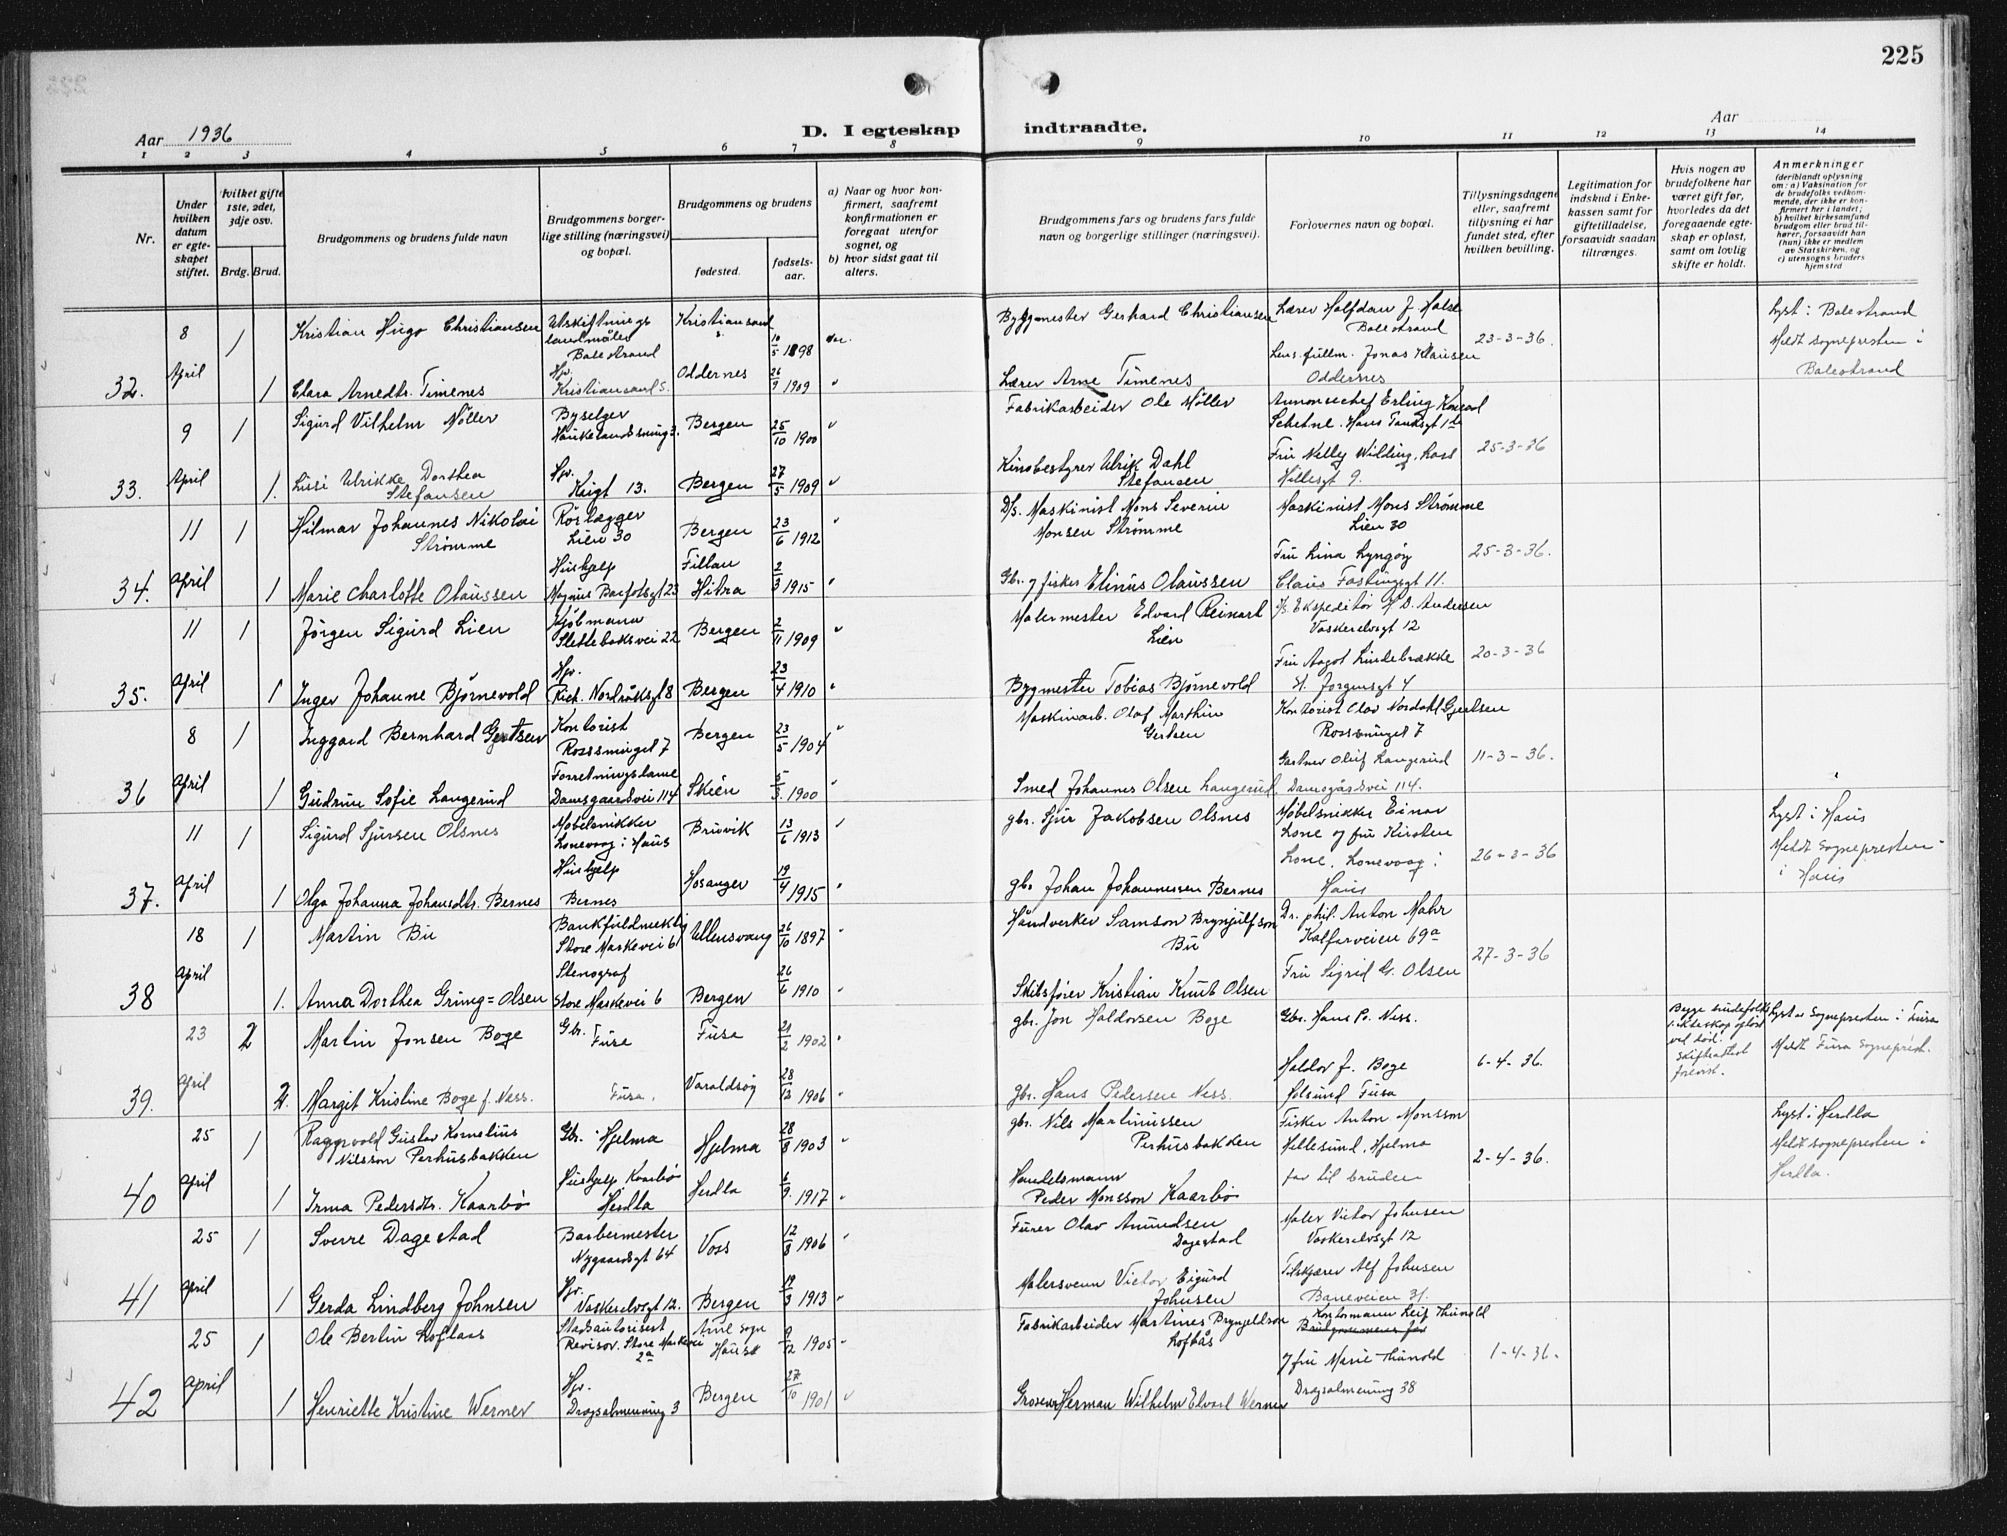 225
Aar 1936
D. I egteskap indtraadte.
Aar
1 2 3 4 5 6 7 8 9 10 11 12 13 14
Nr.
Under hvilken datum er egteskapet stiftet.
Hvilket gifte 1ste, 2det, 3dje osv.
Brdg. Brud.
Brudgommens og brudens fulde navn
Brudgommens borgerlige stilling (næringsvei) og bopæl.
Brudgommens og brudens
fødested.
fødselsaar.
a) Naar og hvor konfirmert, saafremt konfirmationen er foregaat utenfor sognet, og
b) hvor sidst gaat til alters.
Brudgommens fars og brudens fars fulde navn og borgerlige stillinger (næringsvei).
Forlovernes navn og bopæl.
Tillysningsdagene eller, saafremt tillysning ei har fundet sted, efter hvilken bevilling.
Legitimation for indskud i Enkekassen samt for giftetilladelse, forsaavidt saadan tiltrænges.
Hvis nogen av brudefolkene har været gift før, hvorledes da det foregaaende egteskap er opløst, samt om lovlig skifte er holdt.
Anmerkninger
(deriblandt oplysning om: a) Vaksination for de brudefolks vedkommende, der ikke er konfirmert her i landet; b) hvilket kirkesamfund brudgom eller brud tilhører, forsaavidt han (hun) ikke er medlem av Statskirken, og c) utensogns bruders hjemsted
8 1 Kristian Hugo Christiansen Utskiftningslandmåler Balestrand Kristiansand s. 10/5 1898 Byggmester Gerhard Christiansen Lærer Halfdan J. Balestrand 23-3-36. Lyst i Balestrand
Meldt sognepresten i Balestrand
32. April 1 Clara Arnedtr. Timenes Hjv. Kristiansand S. Oddernes 26/9 1909 " Lærer Arne Timenes Lens. fullm. Jonas Klausen Oddernes
9 1 Sigurd Vilhelm Møller Byselger Haukelandssving 3. Bergen 25/10 1900 " Fabrikarbeider Ole Møller Annonsechef Erling Konrad Hans Tanksgt 25-3-36
33. April 1. Lissi Ulrikke Dorthea Stefansen Hjv. Krigt 13. Bergen 27/5 1909 " Kinobestyrer Ulrik Dahl Stefansen Fru Nelly Wilding, Hillesgt 9.
11 1 Hilmar Johannes Nikolai Strømme Rørlægger Lien 30 Bergen 23/6 1912 " D/s. Maskinist Mons Severin Monsen Strømme Maskinist Mons Strømme Lien 30 25-3-36.
34. April 1 Marie Charlotte Olaussen Hushjelp Magnus Barfotsgt 23 Fillan Hitra 2/3 1915 " Gbr. og fisker Elinus Olaussen Fru Lina Lyngøy Claus Fastingsgt 11.
11 1 Jørgen Sigurd Lien Kjøbmann Slettebaksvei 22 Bergen 2/11 1909 " Malermester Edvard Reinart Lien Ekspeditør H. D. Andersen Vaskerelvsgt 12 20-3-36
35. April 1 Inger Johanne Bjørnevold Hjv. Rich. Nordråksgt 8 Bergen 23/4 1910 " Bygmester Tobias Bjørnevold Fru Aagot Lindebrække St. Jørgensgt 4
8 1 Inggard Bernhard Gertsen Kontorist Rosssmuget 7 Bergen 23/5 1904 " Maskinarb. Olaf Marthin Gertsen Kontorist Olav Nordahl Gjertsen Rossmuget 7 11-3-36.
36 April 1 Gudrun Sofie Langerud Forretningsdame Damsgaardsvei 114 Skien 5/3 1900 " Smed Johannes Olsen Langerud Gartner Oluf Langerud Damsgårdsvei 114.
11 1 Sigurd Sjursen Olsnes Møbelsnikker Lonevaag i Haus Bruvik 13/6 1913 " gbr. Sjur Jakobsen Olsnes Møbelsnikker Einar Lone og fru Kirsten Lone, Lonevaag i Haus 26-3-36 Lyst i Haus
Meldt sognepresten i Haus
37. April 1 Olga Johanna Johansdtr. Bernes Hushjelp Bernes Hosanger 19/4 1915 " gbr Johan Johannessen Bernes
18 1 Martin Bu Bankfuldmektig Store Markevei 6 Ullensvang 26/10 1897 " Håndverker Samson Brynjulfson Bu Dr. phil. Anton Mohr Kalfarveien 69a 27-3-36
38 April 1. Anna Dorthea Grung=Olsen Stenograf Store Markevei 6 Bergen 26/6 1910 " Skibsfører Kristian Knut Olsen Fru Sigrid G. Olsen
23 2 Martin Jonsen Boge Gbr. Fusa Fusa 21/2 1902 " gbr. Jon Haldorsen Boge Gbr. Hans P. Ness. 6-4-36. Begge brudefolks ekteskap opløst ved død. Skifteattest forevist. Lyst av sognepresten i Fusa
Meldt Fusa sogneprest.
39. April 2. Margit Kristine Boge f. Ness. Fusa. Varaldsøy 28/12 1906 " gbr. Hans Pedersen Ness. Haldor J. Boge Fusa
25 1 Ragnvald Gustav Kornelius Nilsson Perhusbakken Gbr. Hjelma Hjelma 28/8 1903 " gbr. Nils Martinussen Perhusbakken Fisker Anton Monsson Hillesund, Hjelma 2-4-36. Lyst i Herdla
Meldt sognepresten i Herdla.
40 April 1 Irma Pedersdtr. Kaarbø Hushjelp Kaarbø Herdla Herdla 6/9. 1917 " Handelsmann Peder Monsson Kaarbø far til bruden
25 1 Sverre Dagestad Barbermester Nygaardsgt 64 Voss 12/8 1906 " Furer Olav Amundsen Dagestad Maler Victor Johnsen Vaskerelvsgt 12
41 April 1 Gerda Lindberg Johnsen Hjv. Vaskerelvsgt 12. Bergen 19/3 1913 " Malersvenn Victor Sigurd Johnsen Tilskjærer Alf Johnsen Baneveien 31.
25 1 Ole Bertin Loftaas Stadsautorisert Revisor. Store Markevei 2a Arne sogn Haus 9/12 1905 " Fabrikarbeider Martines Brynjeldson Loftås Kontormann Leif Thunold og fru Marie Thunold Dragsalmening 38 1-4-36.
42 April 1 Henriette Kristine Werner Hjv. Dragsalmenning 3 Bergen 27/10 1901 " Grosserer Herman Wilhelm Edvard Werner